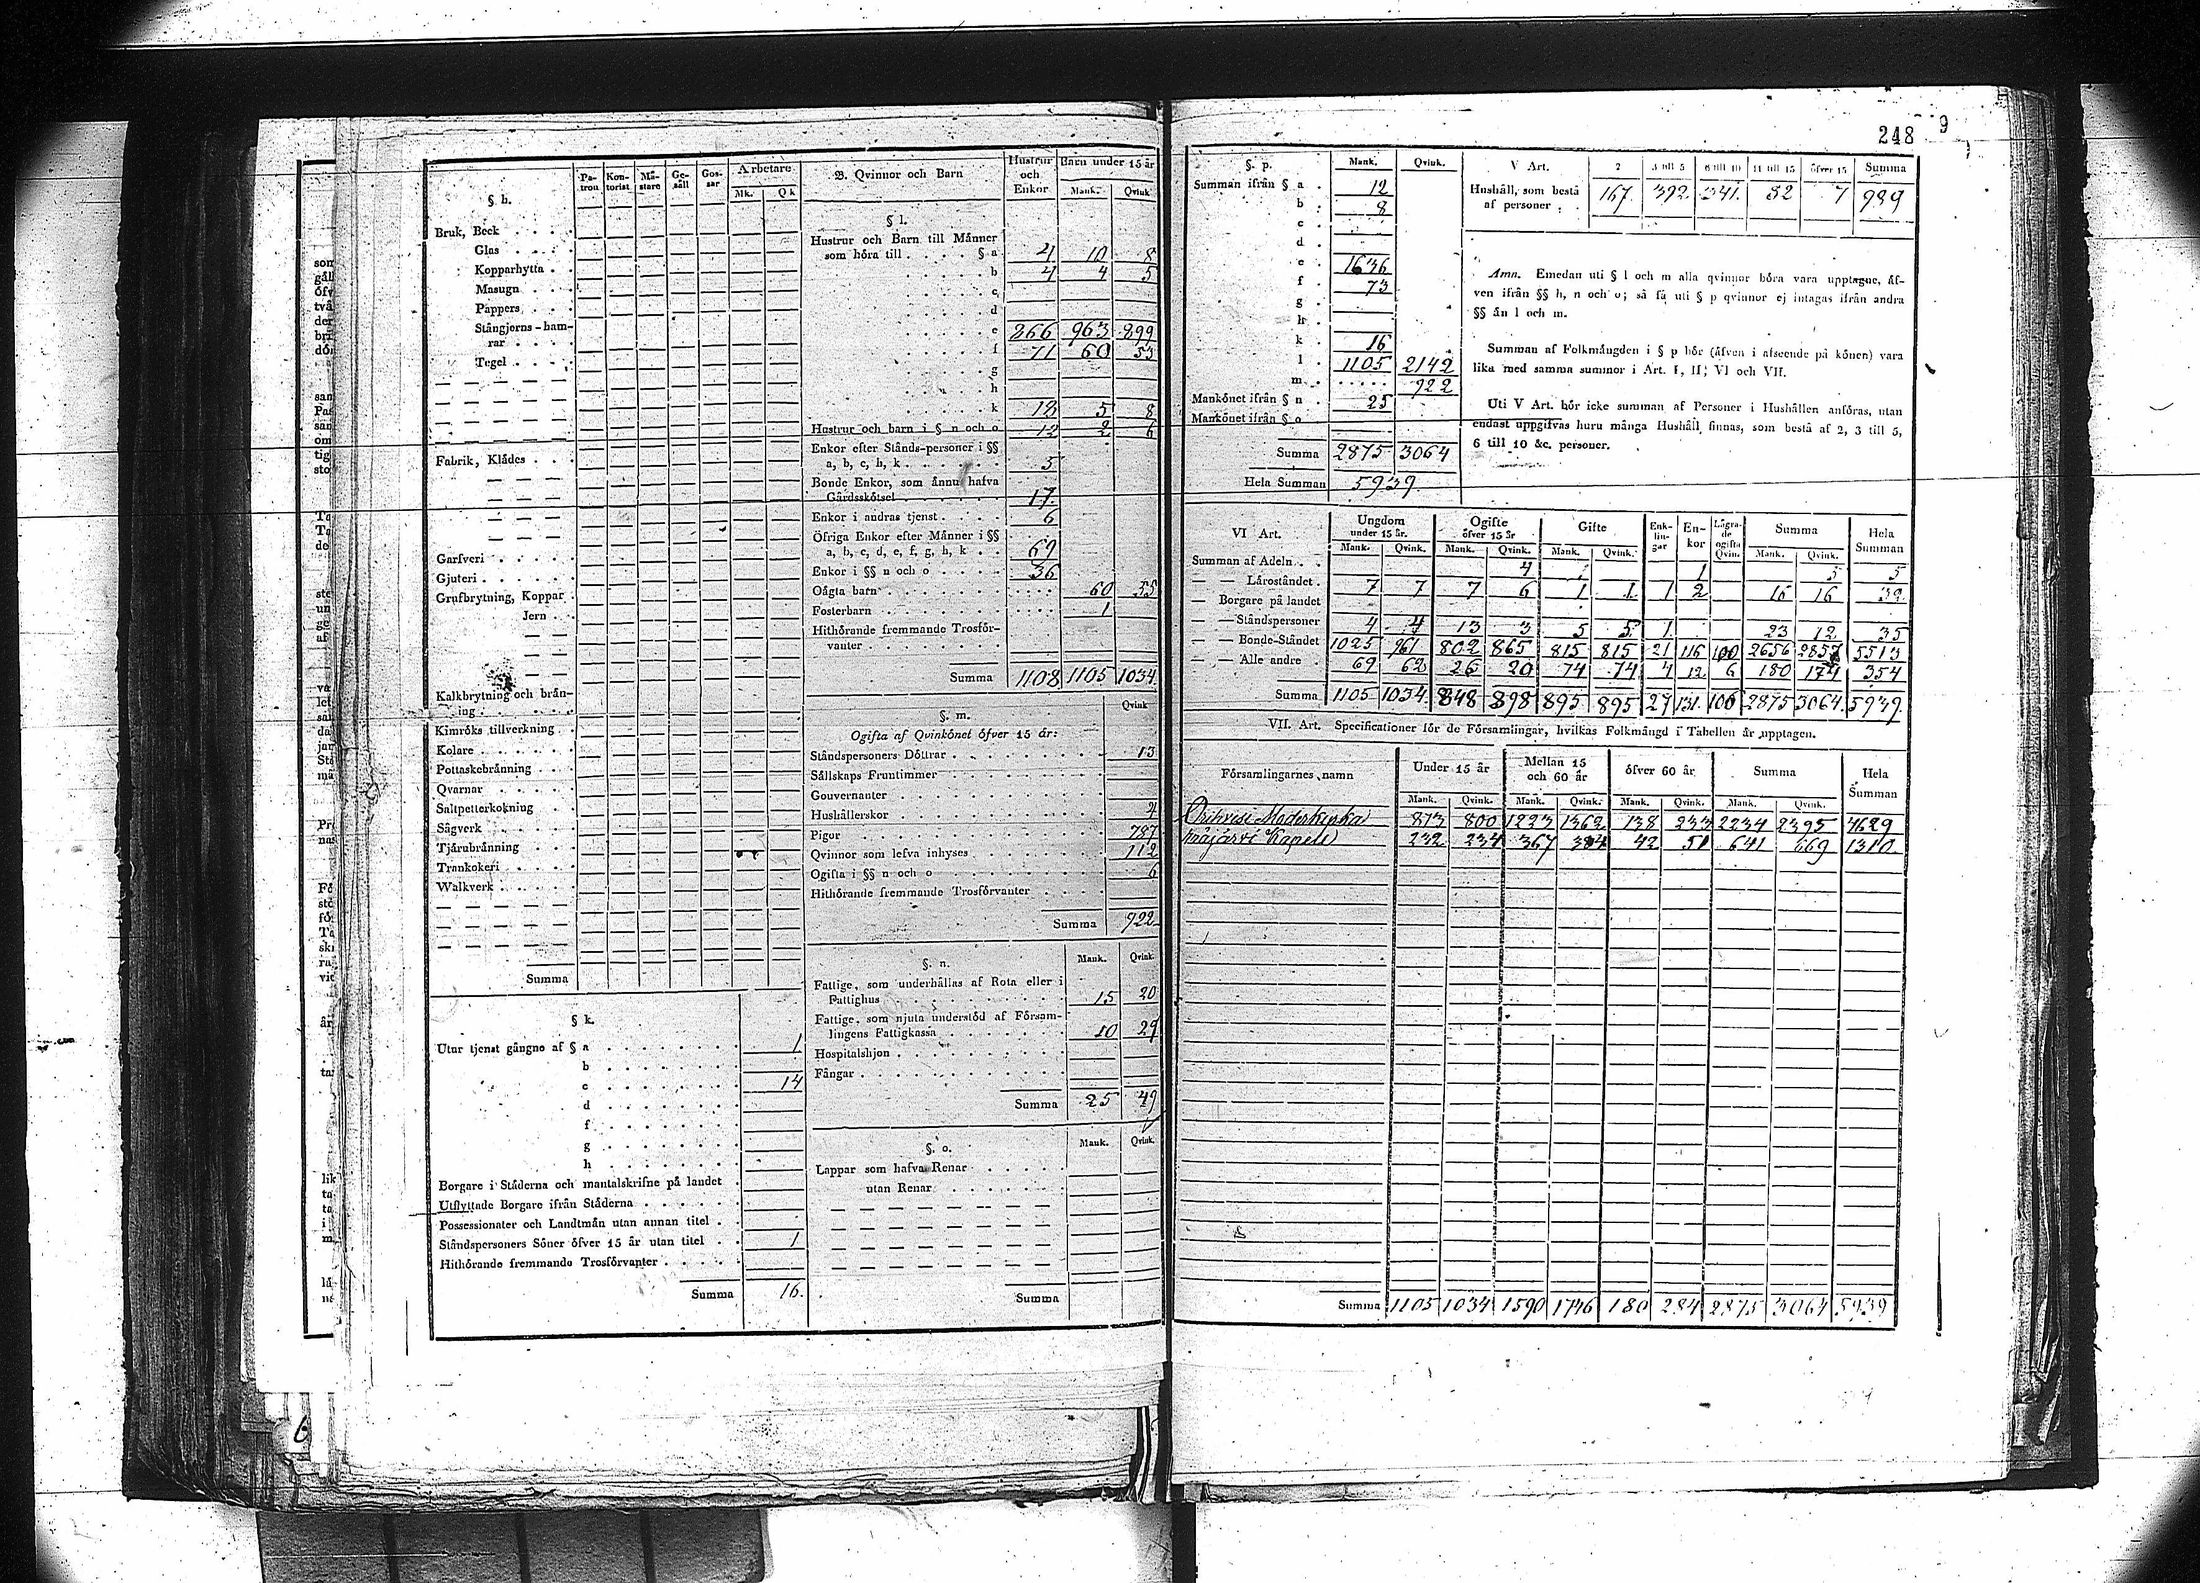 248 9
§ h.
Pa-tron Kon-torist Mä-stare Ge-säll Gos-sar Arbetare
Mk. Qk
Bruk, Beck
Glas
Kopparhytta
Masugn
Pappers
Stångjerns-ham-
rar
Tegel
Fabrik, Klädes
Garfveri
Gjuteri
Grufbrytning, Koppar
Jern
Kalkbrytning och brån-
ing
Kimröks tillverkning
Kolare
Pottaskebränning
Qvarnar
Saltpetterkokning
Sågverk
Tjärubränning
Trankokeri
Walkverk
Summa
§ k.
Utur tjenst gångne af § a 1
b
c 14
d
f
g
h
Borgare i Städerna och mantalskrifne på landet
Utflyttade Borgare ifrån Städerna
Possessionater och Landtmän utan annan titel
Ståndspersoners Söner öfver 15 år utan titel 1
Hithörande fremmande Trosförvanter
Summa 16.
B. Qvinnor och Barn
Hustrur och Enkor Barn under 15 år
Mank. Qvink
§ l.
Hustrur och Barn till Männer
som höra till § a 4 10 8
b 4 4 5
c
d
e 866 963 899
f 71 60 53
g
h
k 18 5 8
Hustrur och barn i § n och o 12 2 6
Enkor efter Stånds-personer i §§
a, b, c, h, k 5
Bonde Enkor, som ännu hafva
Gårdsskötsel 17.
Enkor i andras tjenst 6
Öfriga Enkor efter Männer i §§
a, b, c, d, e, f, g, h, k 69
Enkor i §§ n och o 36
Oägta barn 60 55
Fosterbarn 1
Hithörande fremmande Trosför-
vanter
Summa 1108 1105 1034
§. m. Qvink
Ogifta af Qvinkönet öfver 15 år:
Ståndspersoners Döttrar 13
Sällskaps Fruntimmer
Gouvernanter
Hushållerskor 4
Pigor 787
Qvinnor som lefva inhyses 112
Ogifta i §§ n och o 6
Hithörande fremmande Trosförvanter
Summa 922
§. n. Mank. Qvink.
Fattige, som underhållas af Rota eller i
Fattighus 15 20
Fattige, som njuta understöd af Försam-
lingens Fattigkassa 10 29
Hospitalshjon
Fångar
Summa 25 49
§. o. Mank. Qvink.
Lappar som hafva Renar
utan Renar
Summa
§. p. Mank. Qvink.
Summan ifrån § a 12
b 8
c
d
e 1636
f 73
g
h
k 16
l 1105 2142
m 922
Mankönet ifrån § n 25
Mankönet ifrån § o
Summa 2875 3064
Hela Summan 5939
V Art. 2 3 till 5 6 till 10 11 till 15 öfver 15 Summa
Hushåll, som bestå
af personer 167. 392. 341. 82 7 989
Anm. Emedan uti § l och m alla qvinnor böra vara upptagne, äf-
ven ifrån §§ h, n och o; så få uti § p qvinnor ej intagas ifrån andra
§§ än l och m.
Summan af Folkmängden i § p bör (äfven i afseende på könen) vara
lika med samma summor i Art. I, II, VI och VII.
Uti V Art. bör icke summan af Personer i Hushållen anföras, utan
endast uppgifvas huru många Hushåll finnas, som bestå af 2, 3 till 5,
6 till 10 &c. personer.
VI Art. Ungdom under 15 år. Ogifte öfver 15 år Gifte Enk-lin-gar En-kor Lägra-de ogifta Qvin. Summa Hela Summan
Mank. Qvink. Mank. Qvink. Mank. Qvink. Mank. Qvink.
Summan af Adeln 4 1 5 5
— — Läroståndet 7 7 7 6 1 1 1 2 16 16 32
— — Borgare på landet
— — Ståndspersoner 4 4 13 3 5 5 1 23 12 35
— — Bonde-Ståndet 1025 961 802 865 815 815 21 116 100 2656 2857 5513
— — Alle andre 69 62 26 20 74 74 4 12 6 180 174 354
Summa 1105 1034 848 898 895 895 27 131. 106 2875 3064 5939.
VII. Art. Specificationer för de Församlingar, hvilkas Folkmängd i Tabellen är upptagen.
Församlingarnes namn Under 15 år Mellan 15 och 60 år öfver 60 år Summa Hela Summan
Mank. Qvink. Mank. Qvink. Mank. Qvink. Mank. Qvink.
Orihvesi Moderkyrka 873 800 1223 1362 138 233 2234 2395 4629
Kapell 232 234 367 384 42 51 641 669 1310.
Summa 1105 1034 1590 1746 180 284 2875 3064 5939